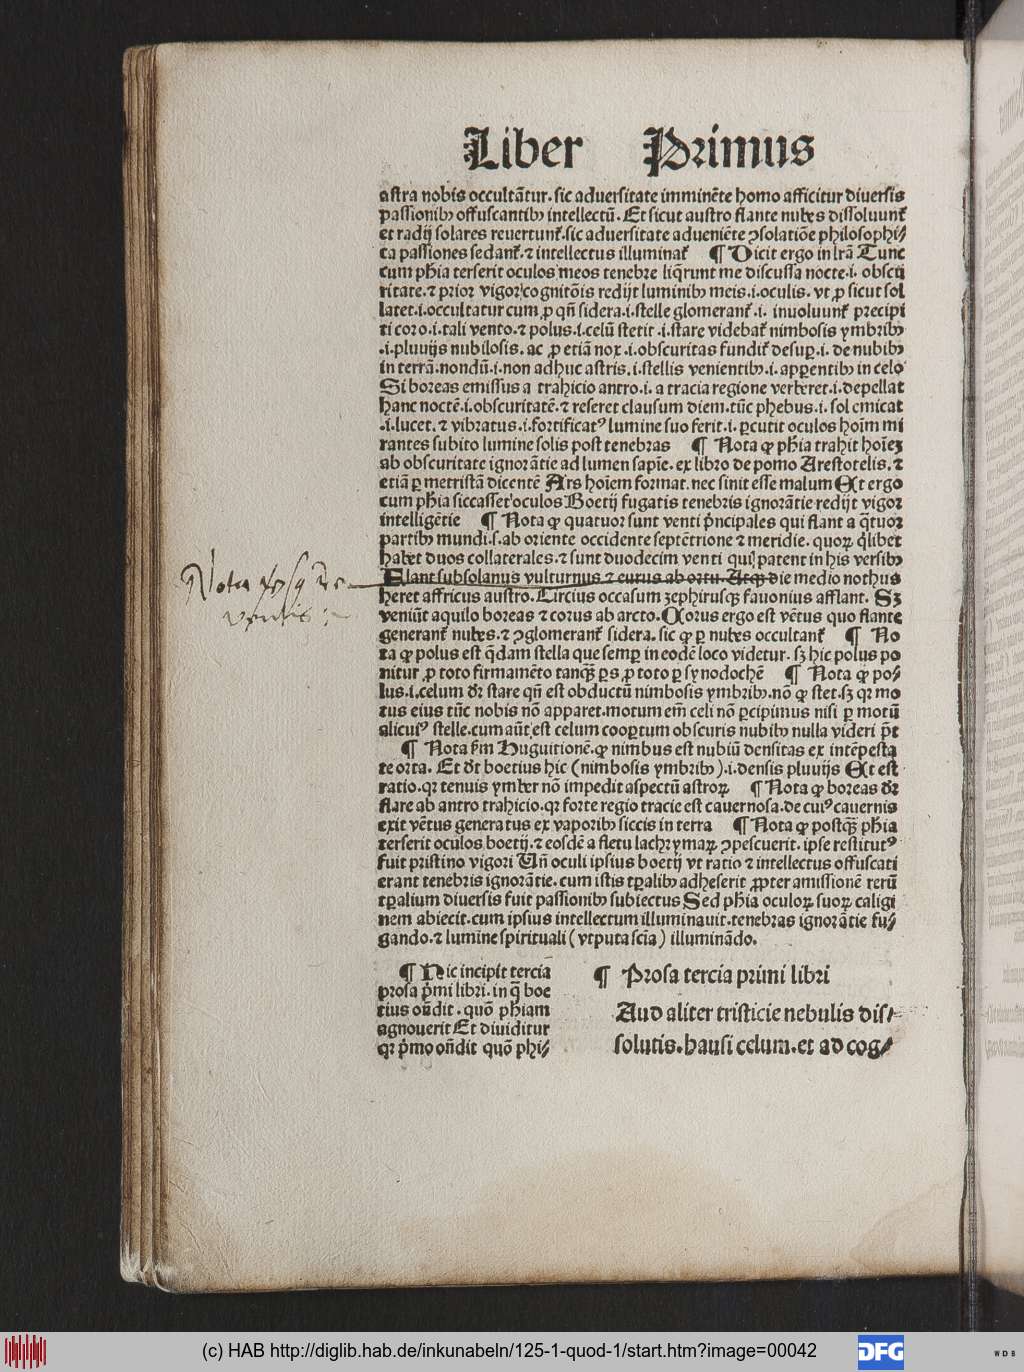 Liber Primus
astra nobis occultãtur. sic aduersitate imminẽte homo afficitur diuersis
passionibꝰ offuscantibꝰ intellectũ. Et sicut austro flante nubes dissoluunt᷑
et radij solares reuertunt᷑. sic aduersitate adueniẽte ꝯsolatiõe philosophi⸗
ca passiones sedant᷑. ⁊ intellectus illuminat᷑ ¶ Dicit ergo in lr̃a Tunc
cum phĩa terserit oculos meos tenebre liq̃runt me discussa nocte .i. obscu
ritate. ⁊ prior vigor cognitõis redijt luminibꝰ meis .i. oculis. vt ꝓ sicut sol
latet .i. occultatur cum ꝓ qñ sidera .i. stelle glomerant᷑ .i. inuoluunt᷑ precipi
ti coro .i. tali vento. ⁊ polus .i. celũ stetit .i. stare videbat᷑ nimbosis ymbribꝰ
.i. pluuijs nubilosis. ac ꝓ etiã nox .i. obscuritas fundit᷑ desuꝑ .i. de nubibꝰ
in terrã. nondũ .i. non adhuc astris .i. stellis venientibꝰ .i. apꝑentibꝰ in celo
Si boreas emissus a trahicio antro .i. a tracia regione verberet .i. depellat
hanc noctẽ .i. obscuritatẽ. ⁊ reseret clausum diem. tũc phebus .i. sol emicat
.i. lucet. ⁊ vibratus .i. fortificatꝰ lumine suo ferit .i. ꝑcutit oculos hoĩm mi
rantes subito lumine solis post tenebras ¶ Nota ꝙ phĩa trahit hoĩeꝫ
ab obscuritate ignorãtie ad lumen sapĩe. ex libro de pomo Arestotelis. ⁊
etiã ꝑ metristã dicentẽ Ars hoĩem format. nec sinit esse malum Et ergo
cum phĩa siccasset oculos Boetij fugatis tenebris ignorãtie redijt vigor
intelligẽtie ¶ Nota ꝙ quatuor sunt venti p̃ncipales qui flant a q̃tuor
partibꝰ mundi .s. ab oriente occidente septẽtrione ⁊ meridie. quoꝝ q̃libet
habet duos collaterales. ⁊ sunt duodecim venti qui patent in his versibꝰ
Nota
Flant subsolanus vulturnus ⁊ eurus ab ortu. Atqꝫ die medio nothus
heret affricus austro. Circius occasum zephirusqꝫ fauonius afflant. Sꝫ
veniũt aquilo boreas ⁊ corus ab arcto. Chorus ergo est vẽtus quo flante
generant᷑ nubes. ⁊ ꝯglomerant᷑ sidera. sic ꝙ ꝑ nubes occultant᷑ ¶ No
ta ꝙ polus est q̃dam stella que semꝑ in eodẽ loco videtur. sꝫ hic polus po
nitur ꝓ toto firmamẽto tanqꝫ̃ ꝑs ꝓ toto ꝑ synodochẽ ¶ Nota ꝙ po⸗
lus .i. celum dr̃ stare qñ est obductũ nimbosis ymbribꝰ. nõ ꝙ stet. sꝫ qꝛ mo
tus eius tũc nobis nõ apparet. motum em̃ celi nõ ꝑcipimus nisi ꝑ motũ
alicuiꝰ stelle. cum aũt est celum cooꝑtum obscuris nubibꝰ nulla videri p̃t
¶ Nota fm̃ Huguitionẽ. ꝙ nimbus est nubiũ densitas ex intẽpesta
te orta. Et dr̃t boetius hic (nimbosis ymbribꝰ) .i. densis pluuijs Et est
ratio. qꝛ tenuis ymber nõ impedit aspectũ astroꝝ ¶ Nota ꝙ boreas dr̃
flare ab antro trahicio. qꝛ forte regio tracie est cauernosa. de cuiꝰ cauernis
exit vẽtus generatus ex vaporibꝰ siccis in terra ¶ Nota ꝙ postqꝫ̃ phĩa
terserit oculos boetij. ⁊ eosdẽ a fletu lachrymaꝝ ꝯpescuerit. ipse restitutꝰ
fuit pristino vigori Vñ oculi ipsius boetij vt ratio ⁊ intellectus offuscati
erant tenebris ignorãtie. cum istis tꝑalibꝰ adheserit ꝓpter amissionẽ rerũ
tꝑalium diuersis fuit passionibꝰ subiectus Sed phĩa oculoꝝ suoꝝ caligi
nem abiecit. cum ipsius intellectum illuminauit. tenebras ignorãtie fu⸗
gando. ⁊ lumine spirituali (vtputa scĩa) illuminãdo.
¶ Hic incipit tercia
prosa p̃mi libri. in q̃ boe
tius oñdit. quõ phĩam
agnouerit Et diuiditur
qꝛ p̃mo oñdit quõ phi⸗
¶ Prosa tercia primi libri
Aud aliter tristicie nebulis dis⸗
solutis. hausi celum. et ad cog⸗
(c) HAB http://diglib.hab.de/inkunabeln/125-1-quod-1/start.htm?image=00042
DFG
WDB